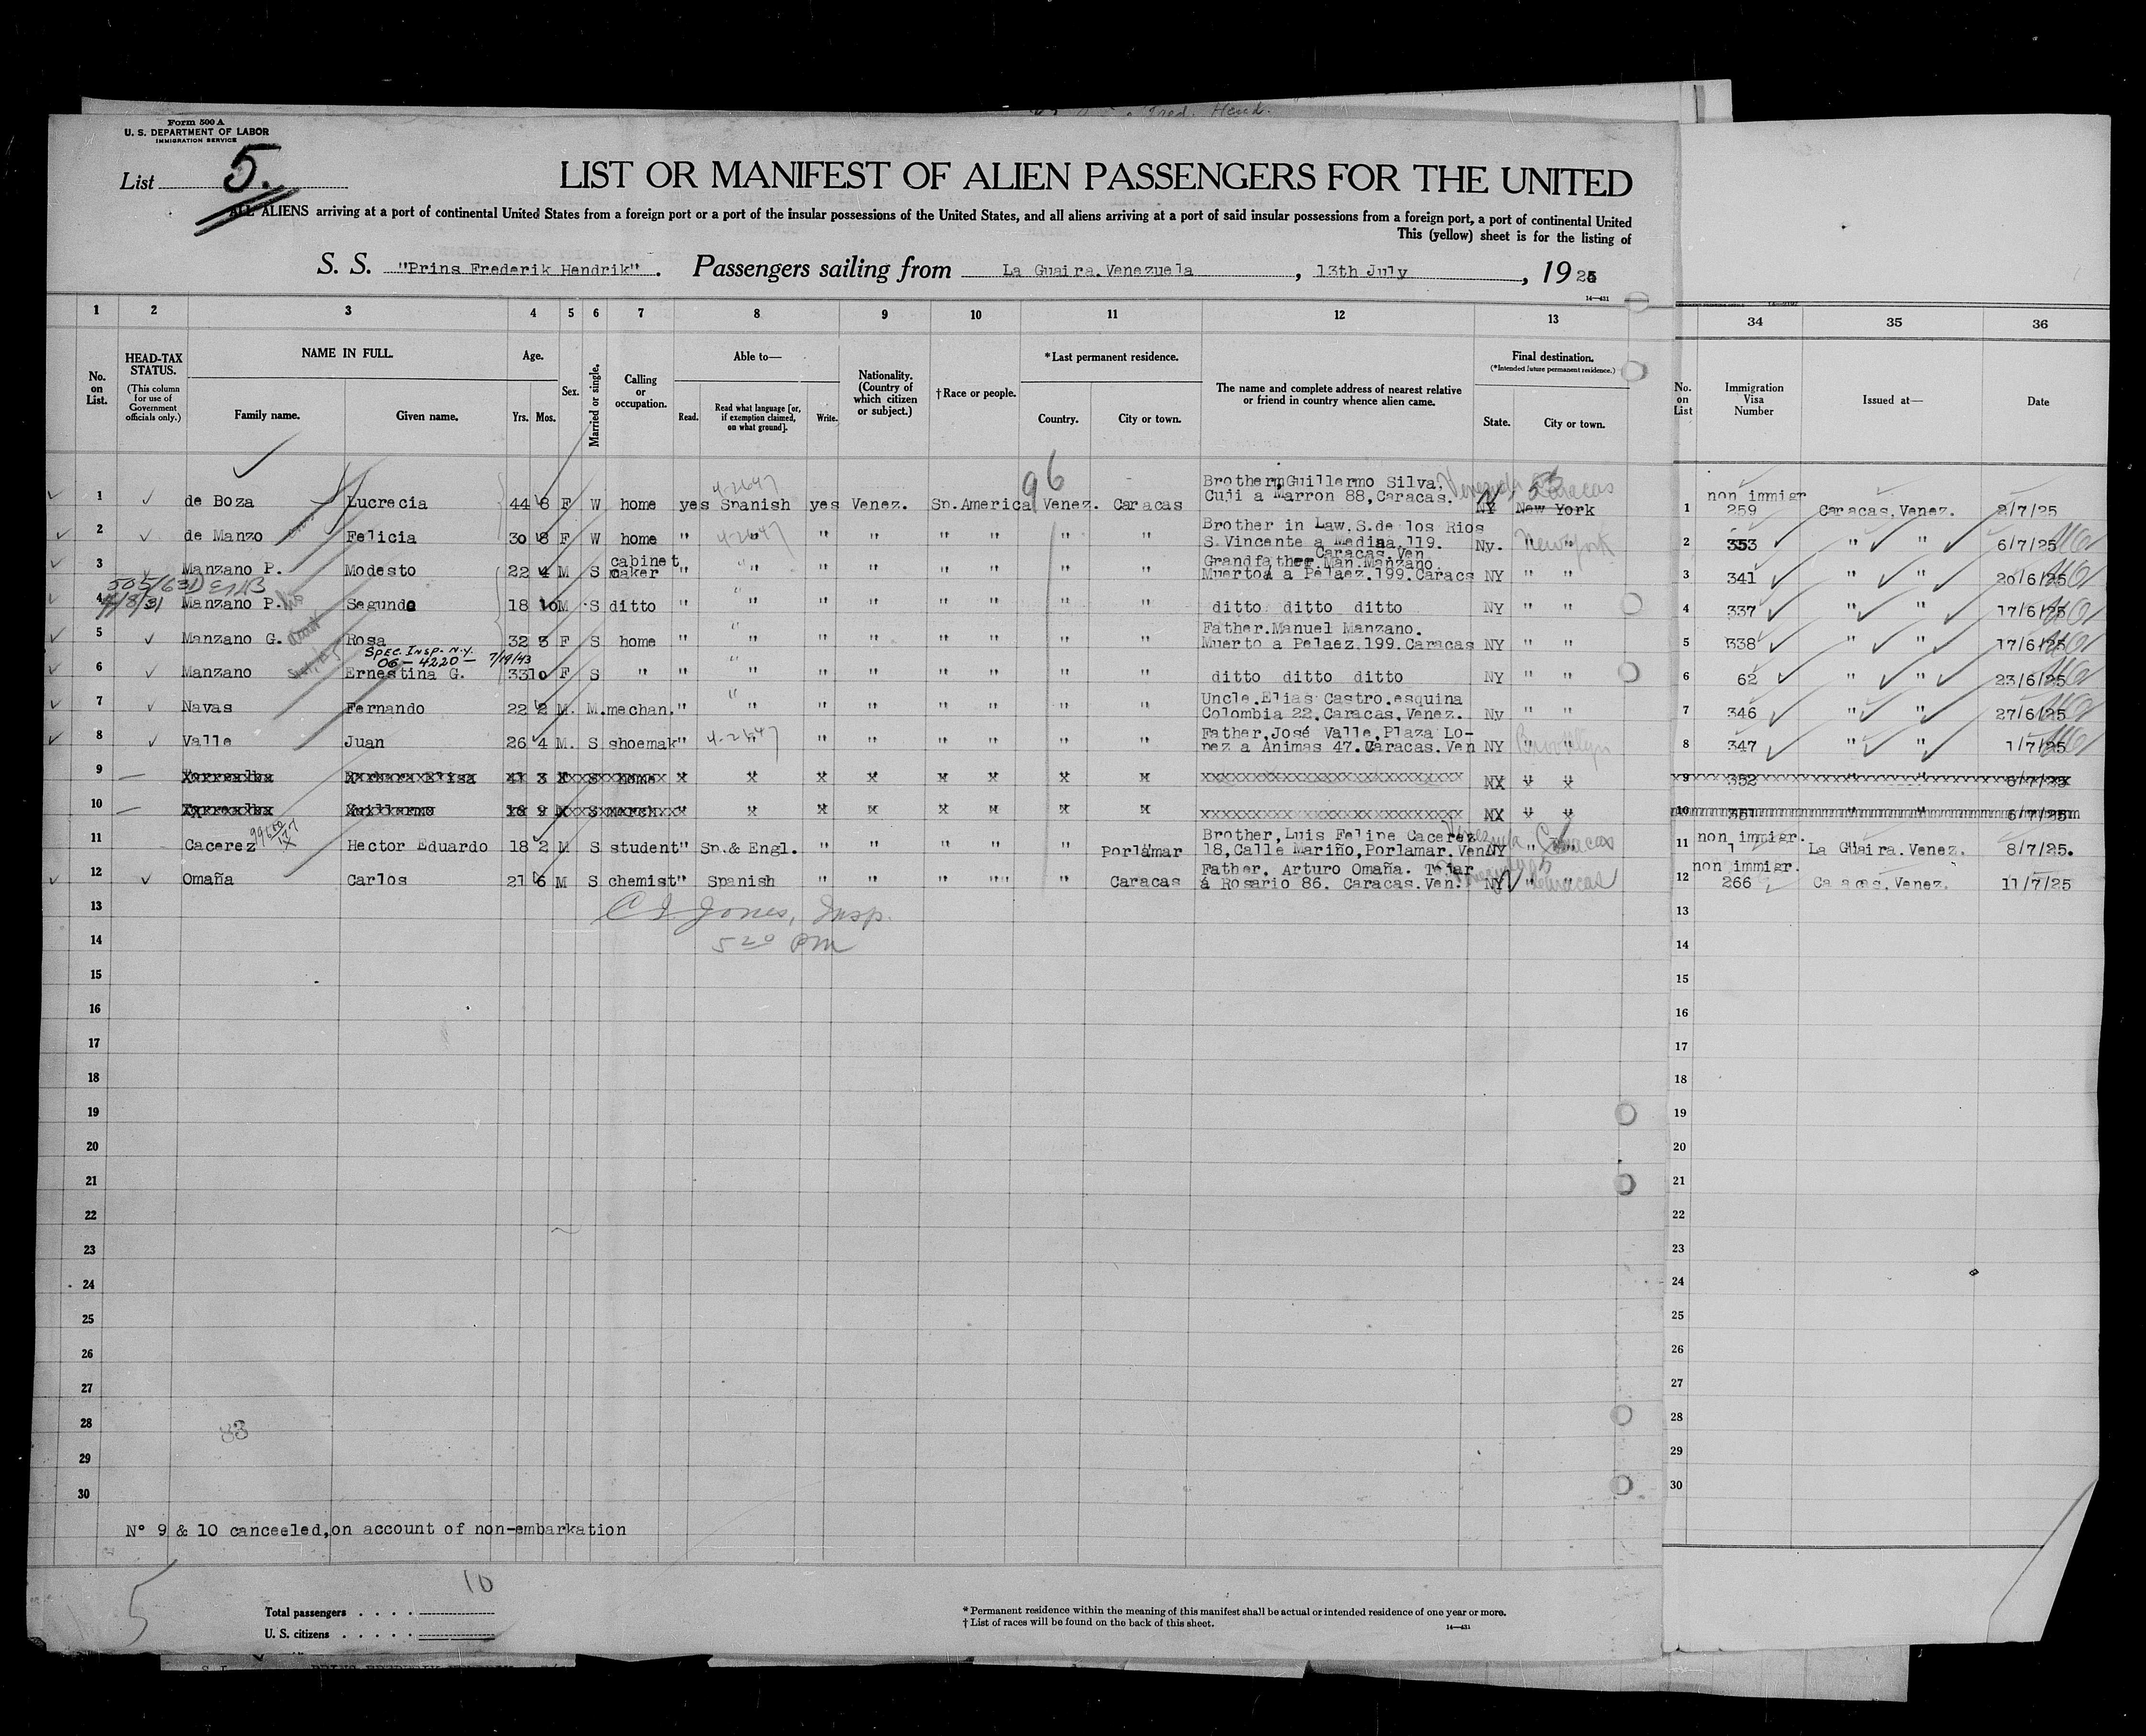 Form 500 A
U. S. DEPARTMENT OF LABOR
IMMIGRATION SERVICE
List 5.
LIST OR MANIFEST OF ALIEN PASSENGERS FOR THE UNITED
ALL ALIENS arriving at a port of continental United States from a foreign port or a port of the insular possessions of the United States, and all aliens arriving at a port of said insular possessions from a foreign port, a port of continental United
This (yellow) sheet is for the listing of
S. S. "Prins Frederik Hendrik". Passengers sailing from La Guaira.Venezuela, 13th July, 1925
14—431
1 2 3 4 5 6 7 8 9 10 11 12 13 34 35 36
No. on List.
HEAD-TAX STATUS.
(This column for use of Government officials only.)
NAME IN FULL.
Family name. Given name.
Age.
Yrs. Mos.
Sex.
Married or single.
Calling or occupation.
Able to—
Read. Read what language [or, if exemption claimed, on what ground]. Write.
Nationality. (Country of which citizen or subject.)
† Race or people.
*Last permanent residence.
Country. City or town.
The name and complete address of nearest relative or friend in country whence alien came.
Final destination.
(*Intended future permanent residence.)
State. City or town.
No. on List
Immigration Visa Number
Issued at—
Date
96
4-2647
1 de Boza Lucrecia 44 8 F W home yes Spanish yes Venez. Sp.America Venez. Caracas Brother, Guillermo Silva. Cuji a Marron 88,Caracas. NY New York Venezuela Caracas 1 non immigr 259 Caracas.Venez. 2/7/25
2 de Manzo Felicia 30 8 F W home " " " " " " " " Brother in Law.S.de los Rios S.Vincente a Medina.119. Caracas.Ven Ny. " " New York 2 353 " " 6/7/25
3 Manzano P. Modesto 22 4 M S cabinet maker " " " " " " " " Grandfather.Man.Manzano Muerto a Pelaez.199.Caracs NY " " 3 341 " " 20/6/25
505/631
4/8/31
4 Manzano P. Segundo 18 10 M S ditto " " " " " " " " ditto ditto ditto NY " " 4 337 " " 17/6/25
5 Manzano G. Rosa 32 3 F S home " " " " " " " " Father.Manuel Manzano. Muerto a Pelaez.199.Caracas NY " " 5 338 " " 17/6/25
SPEC. INSP. N.Y.
06-4220- 7/19/43
6 Manzano Ernestina G. 33 10 F S " " " " " " " " " ditto ditto ditto NY " " 6 62 " " 23/6/25
7 Navas Fernando 22 2 M. M. mechan. " " " " " " " " Uncle.Elias Castro.esquina Colombia 22.Caracas.Venez. Ny " " 7 346 " " 27/6/25
8 Valle Juan 26 4 M. S shoemak " 4-2647 " " " " " " " Father,José Valle,Plaza Lo- pez a Animas 47.Caracas.Ven NY " " Brooklyn 8 347 " " 1/7/25
9 41 3 S home 9 352 " " 6/7/25
10 18 9 S merch. 10 351 " " 6/7/25
11 Cacerez Hector Eduardo 18 2 M S student " Sp.& Engl. " " " " " Porlamar Brother,Luis Felipe Cacerez 18,Calle Mariño,Porlamar.Ven. NY " " Caracas 11 non immigr. 1 La Guaira.Venez. 8/7/25.
12 Omaña Carlos 21 6 M S chemist " Spanish " " " " " Caracas Father. Arturo Omaña. Tejar á Rosario 86. Caracas.Ven. NY " " Caracas 12 non immigr. 266 Caracas.Venez. 11/7/25
13 C I Jones, Insp. 13
14 5 20 PM 14
15 15
16 16
17 17
18 18
19 19
20 20
21 21
22 22
23 23
24 24
25 25
26 26
27 27
28 83 28
29 29
30 30
N° 9 & 10 canceeled,on account of non-embarkation
5
10
Total passengers . . . .
U. S. citizens . . . . .
* Permanent residence within the meaning of this manifest shall be actual or intended residence of one year or more.
† List of races will be found on the back of this sheet.
14—431